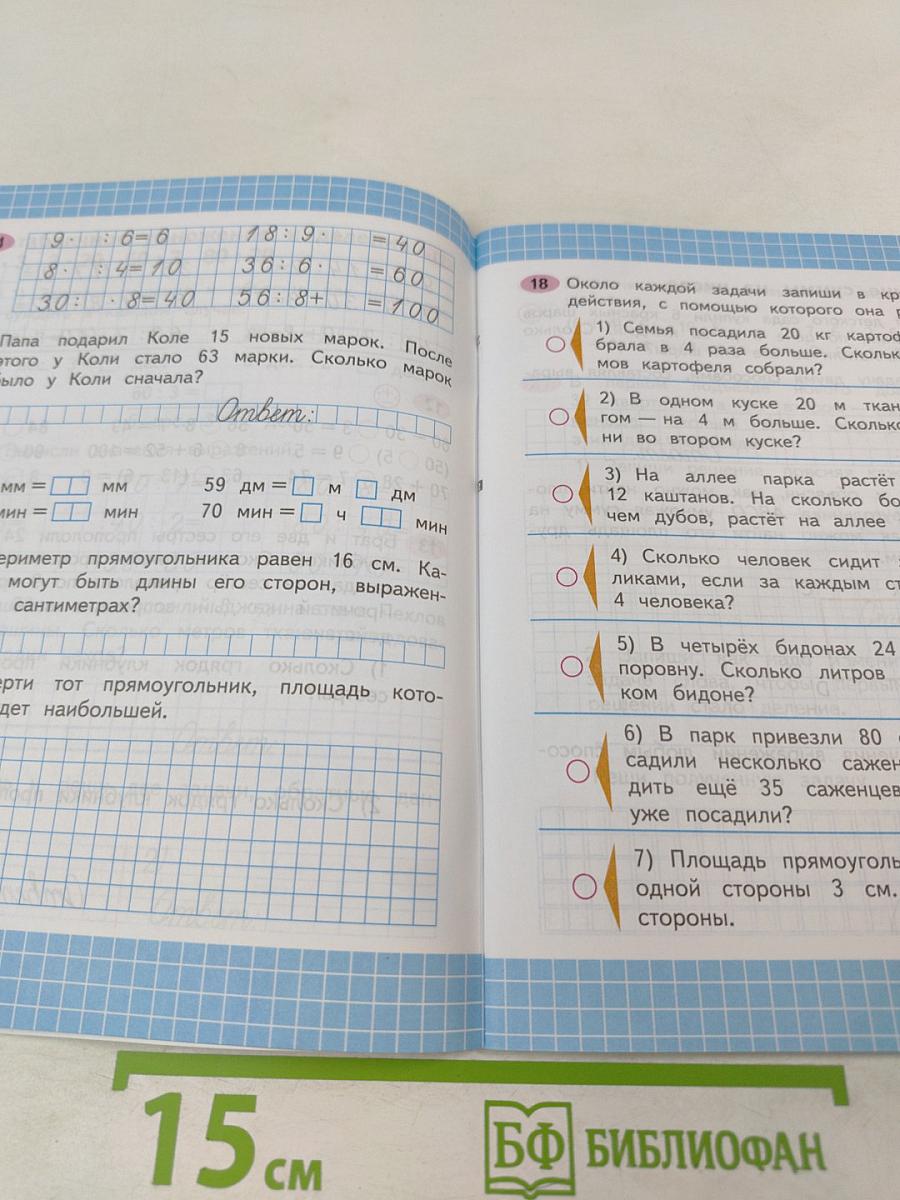 9· : 6=6 18:9· =40
8· : 4=10 36:6· =60
30: ·8=40 56:8+ =100
Папа подарил Коле 15 новых марок. После
этого у Коли стало 63 марки. Сколько марок
было у Коли сначала?
Ответ:
мм = мм 59 дм = м дм
мин = мин 70 мин = ч мин
ериметр прямоугольника равен 16 см. Ка-
могут быть длины его сторон, выражен-
сантиметрах?
ерти тот прямоугольник, площадь кото-
дет наибольшей.
18 Около каждой задачи запиши в кр
действия, с помощью которого она р
1) Семья посадила 20 кг картоф
брала в 4 раза больше. Скольк
мов картофеля собрали?
2) В одном куске 20 м ткан
гом — на 4 м больше. Скольк
ни во втором куске?
3) На аллее парка растёт
12 каштанов. На сколько бо
чем дубов, растёт на аллее
4) Сколько человек сидит
ликами, если за каждым ст
4 человека?
5) В четырёх бидонах 24
поровну. Сколько литров
ком бидоне?
6) В парк привезли 80
садили несколько сажен
дить ещё 35 саженцев
уже посадили?
7) Площадь прямоуголь
одной стороны 3 см.
стороны.
15 см
БФ БИБЛИОФАН